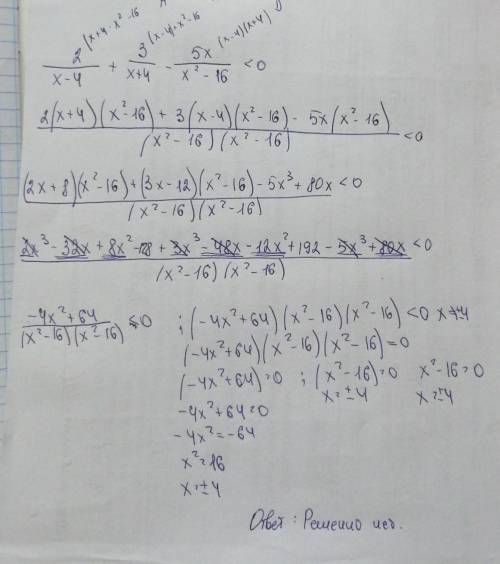 (x+4 · x² -16 (x-4) · x² -16 (x-4)(x+4)
2/(x-4) + 3/(x+4) - 5x/(x² - 16) < 0
(2(x+4)(x²-16) + 3(x-4)(x²-16) - 5x(x²-16))/((x²-16)(x²-16)) < 0
((2x+8)(x²-16)+(3x-12)(x²-16)-5x³+80x)/((x²-16)(x²-16)) < 0
(2x³-32x+8x²-128+3x³-48x-12x²+192-5x³+80x)/((x²-16)(x²-16)) < 0
(-4x²+64)/((x²-16)(x²-16)) < 0 ; (-4x²+64)(x²-16)(x²-16) < 0 x≠4
(-4x²+64)(x²-16)(x²-16)=0
(-4x²+64)=0 ; (x²-16)=0 x²-16=0
-4x²+64=0 x=±4 x=±4
-4x²=-64
x²=16
x=±4
Ответ: Решений нет.